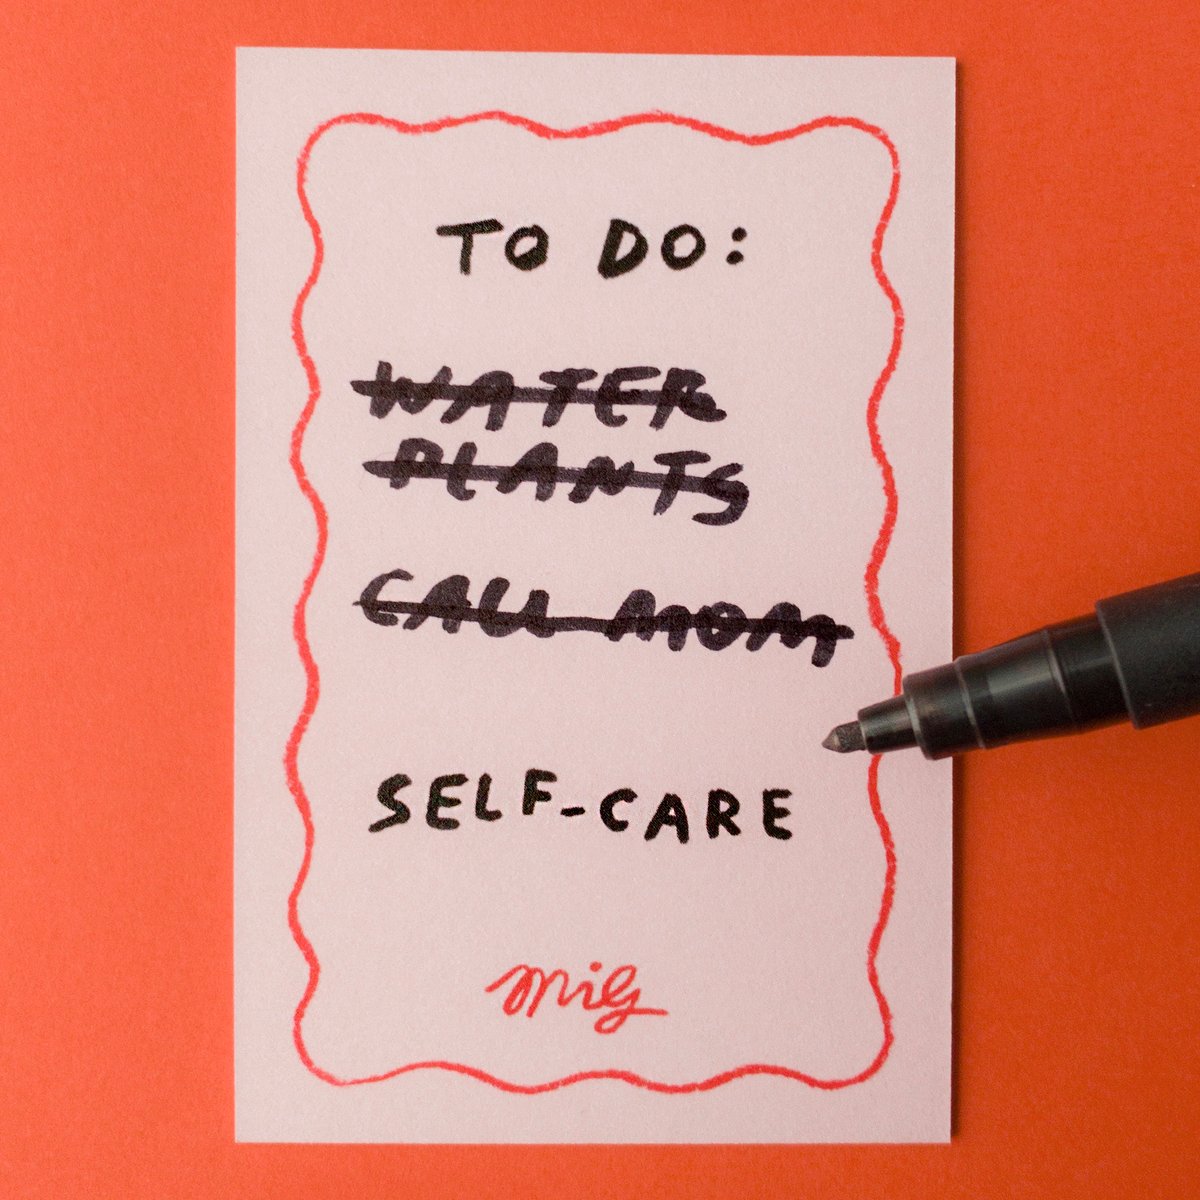 TO DO:
WATER
PLANTS
CALL MOM
SELF-CARE
MiG